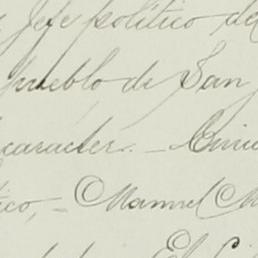 Jefe político de
pueblo de San
caracter. — Civic
ico, — Manuel M
El C